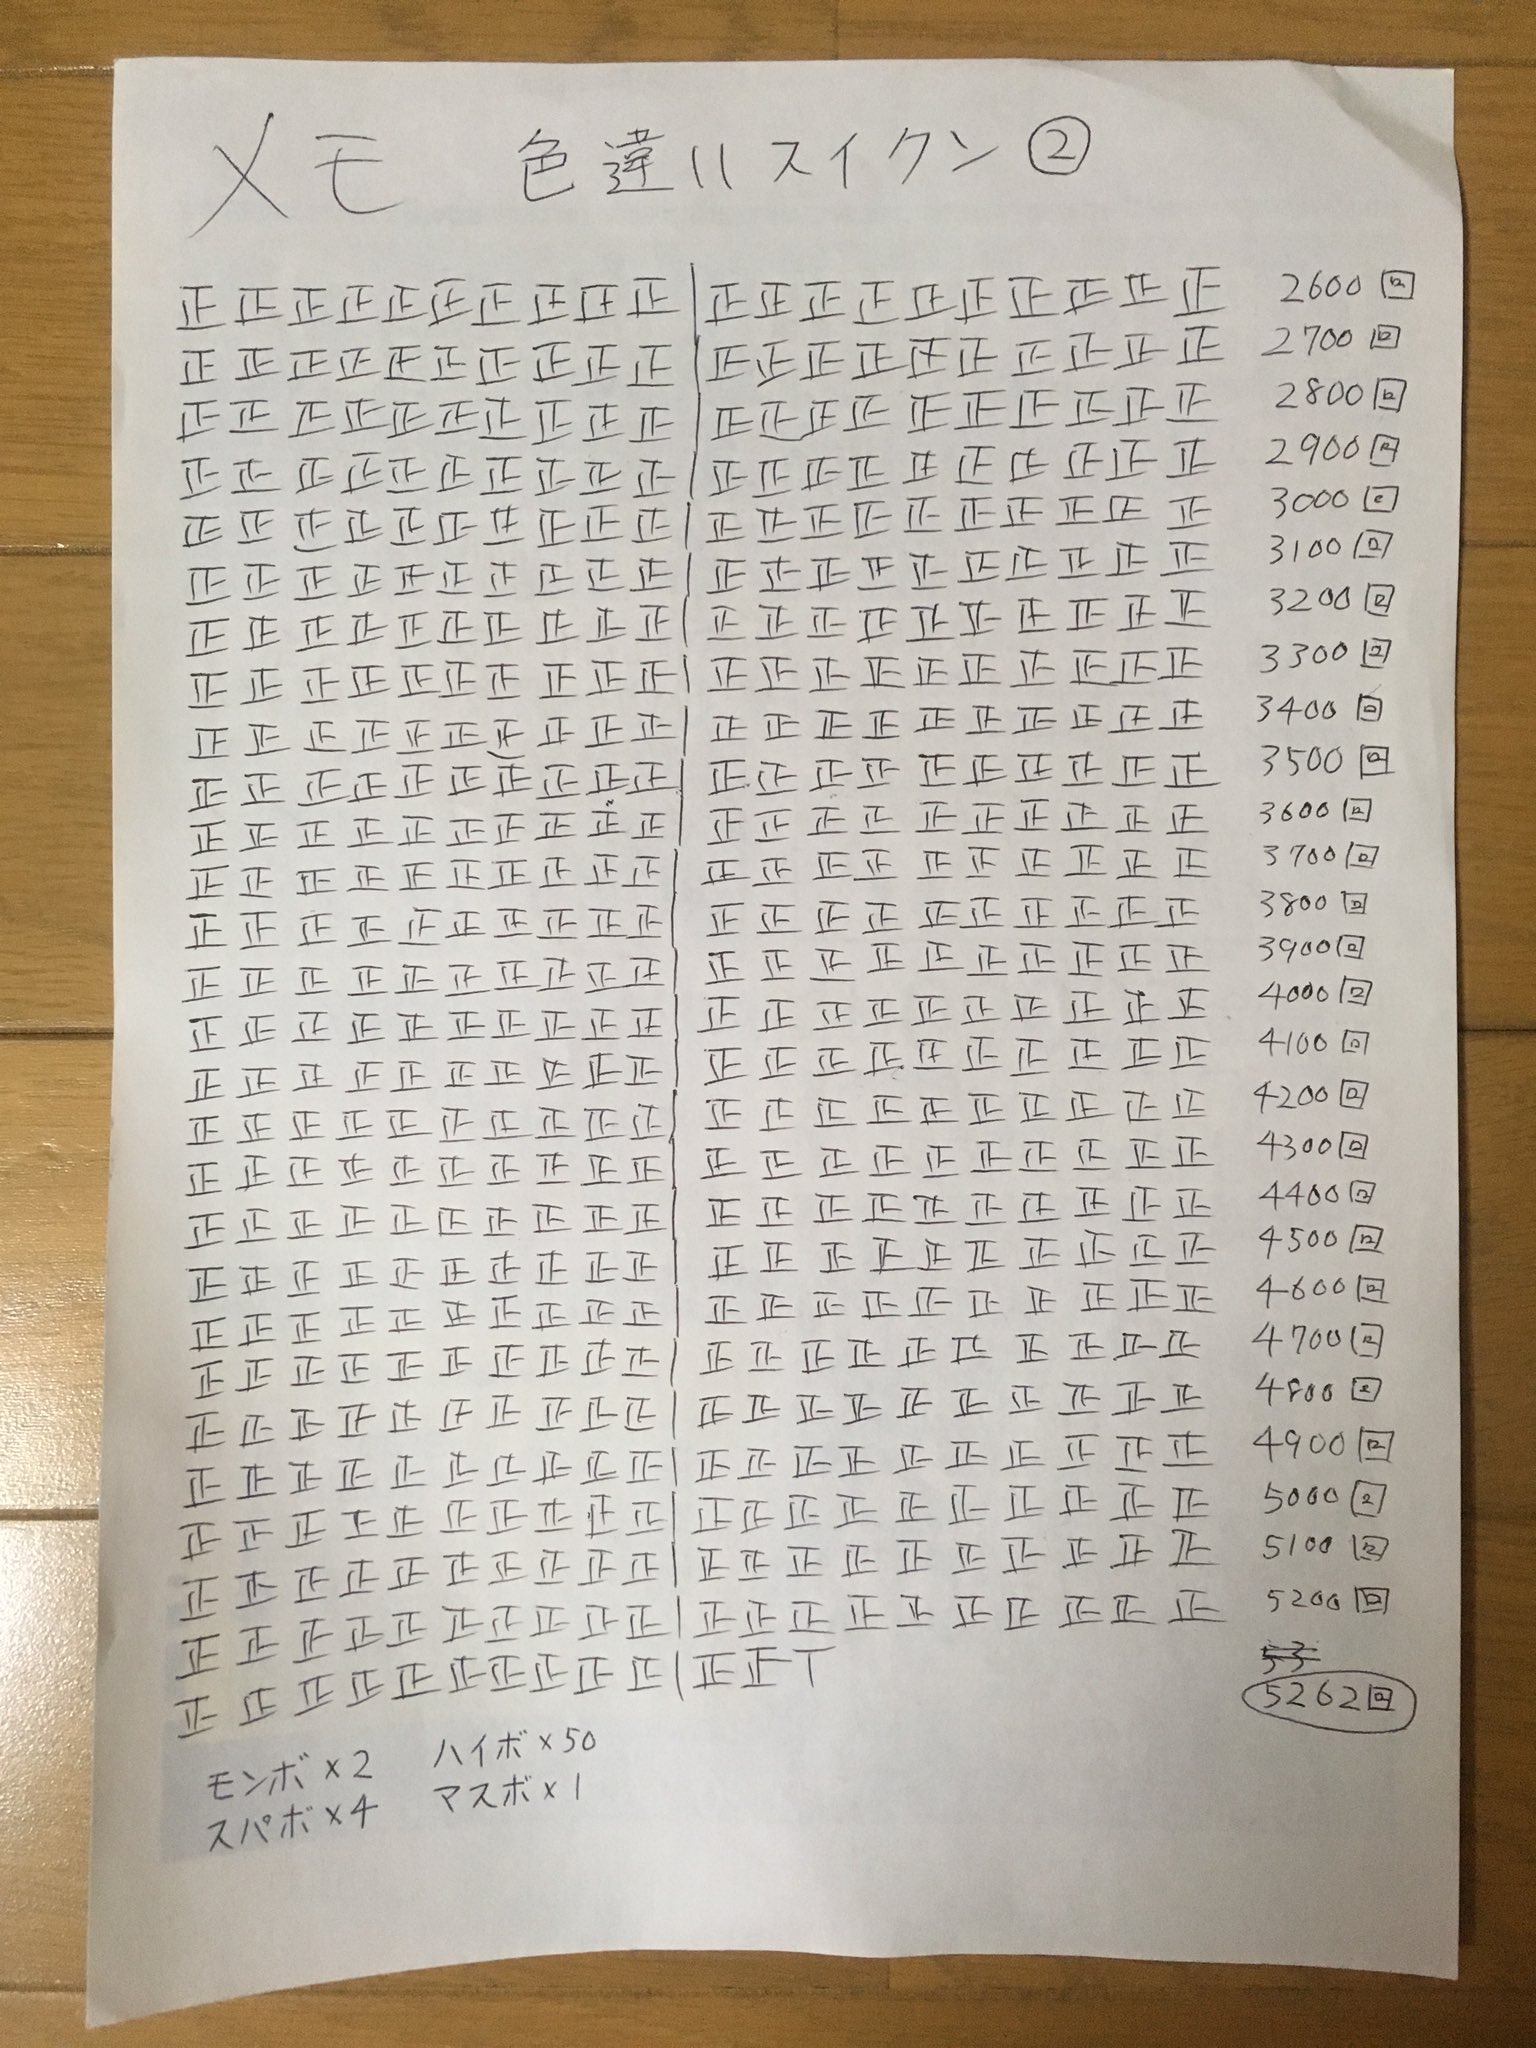 メモ 色違いスイクン②
正正正正正正正正正正|正正正正正正正正正正 2600回
正正正正正正正正正正|正正正正正正正正正正 2700回
正正正正正正正正正正|正正正正正正正正正正 2800回
正正正正正正正正正正|正正正正正正正正正正 2900回
正正正正正正正正正正|正正正正正正正正正正 3000回
正正正正正正正正正正|正正正正正正正正正正 3100回
正正正正正正正正正正|正正正正正正正正正正 3200回
正正正正正正正正正正|正正正正正正正正正正 3300回
正正正正正正正正正正|正正正正正正正正正正 3400回
正正正正正正正正正正|正正正正正正正正正正 3500回
正正正正正正正正正正|正正正正正正正正正正 3600回
正正正正正正正正正正|正正正正正正正正正正 3700回
正正正正正正正正正正|正正正正正正正正正正 3800回
正正正正正正正正正正|正正正正正正正正正正 3900回
正正正正正正正正正正|正正正正正正正正正正 4000回
正正正正正正正正正正|正正正正正正正正正正 4100回
正正正正正正正正正正|正正正正正正正正正正 4200回
正正正正正正正正正正|正正正正正正正正正正 4300回
正正正正正正正正正正|正正正正正正正正正正 4400回
正正正正正正正正正正|正正正正正正正正正正 4500回
正正正正正正正正正正|正正正正正正正正正正 4600回
正正正正正正正正正正|正正正正正正正正正正 4700回
正正正正正正正正正正|正正正正正正正正正正 4800回
正正正正正正正正正正|正正正正正正正正正正 4900回
正正正正正正正正正正|正正正正正正正正正正 5000回
正正正正正正正正正正|正正正正正正正正正正 5100回
正正正正正正正正正正|正正正正正正正正正正 5200回
正正正正正正正正正正|正正T 53
5262回
モンボ×2 ハイボ×50
スパボ×4 マスボ×1